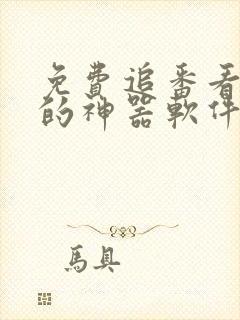 免費追番看
的神器軟件
馬具